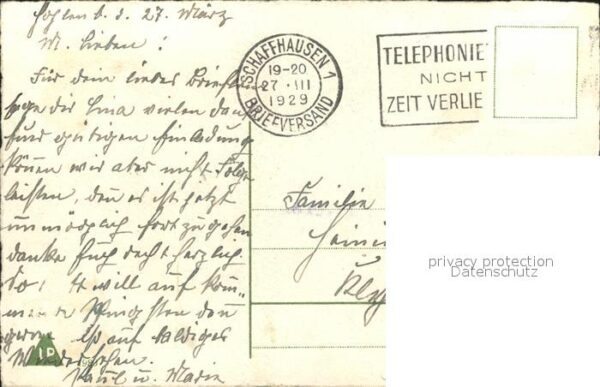 27. März
M. Lieben!
Für dein liebes Brieflein
sage dir Lina vielen Dank
für gütigen Einladung
können wir aber nicht Folge
leisten, den es ist jetzt
unmöglich fort zu gehen
danke Euch recht herzlich.
will auf kom¬
mende Pfingsten den
gerne auf baldiges
Wiedersehen.
Paul u. Marie
SCHAFFHAUSEN 1
19-20
27.III
1929
BRIEFVERSAND
TELEPHONIE
NICHT
ZEIT VERLIE
Familie
Heini
privacy protection
Datenschutz